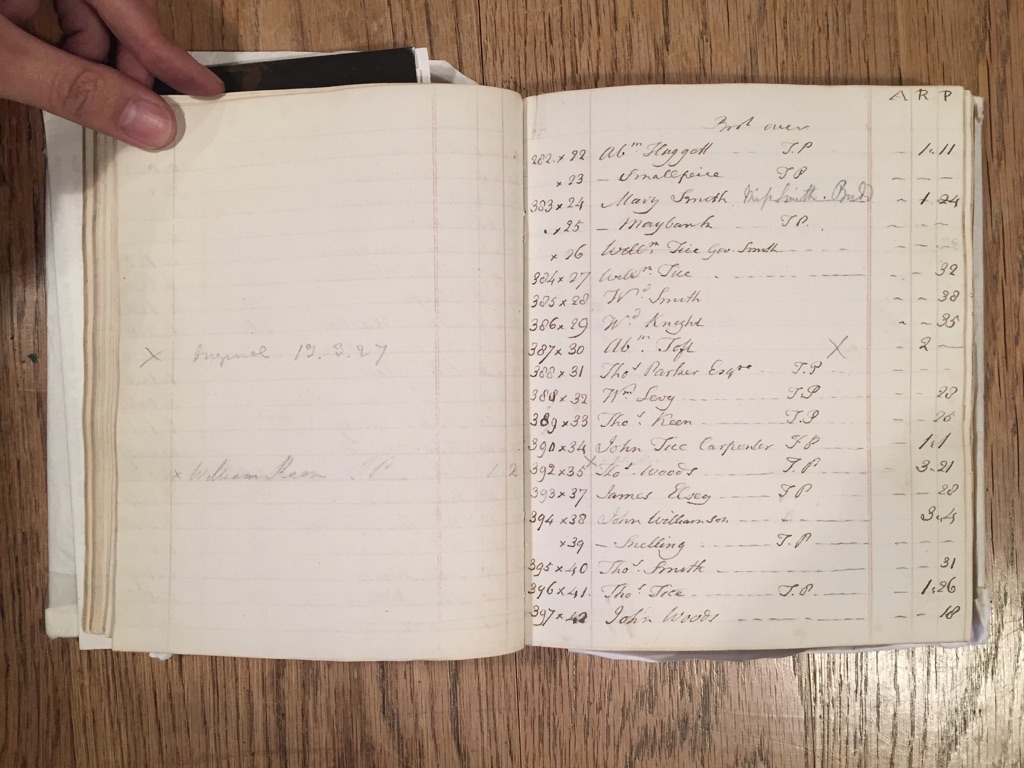 × 19.3.27
× William Keen T.P 1 2
A R P
Brot over
282 × 22 Abm Huggett T.P 1.11
× 23 – Smallpiece T P – – –
383 × 24 Mary Smith Miss Smith - 1 24
× 25 – Maybank T P. - – –
× 26 Willm Tice Geo. Smith - –
384 × 27 Willm Tice - - 32
385 × 28 Wd Smith - - 38
386 × 29 Wd Knight - - 35
387 × 30 Abm. Toft × - 2 —
388 × 31 Thos Parker Esqre T.P - – –
388 × 32 Wm Levy T.P - - 28
389 × 33 Thos Keen T.P - -
390 × 34 John Tice Carpenter T P - 1.1
392 × 35 Thos Woods T.P - 3.21
393 × 37 James Elsey T P - - 28
394 × 38 John Williamson - 3.4
× 39 – Snelling T.P - – –
395 × 40 Thos Smith - - 31
396 × 41 Thos Tice T.P - 1.26
397 × 42 John Woods - - 18